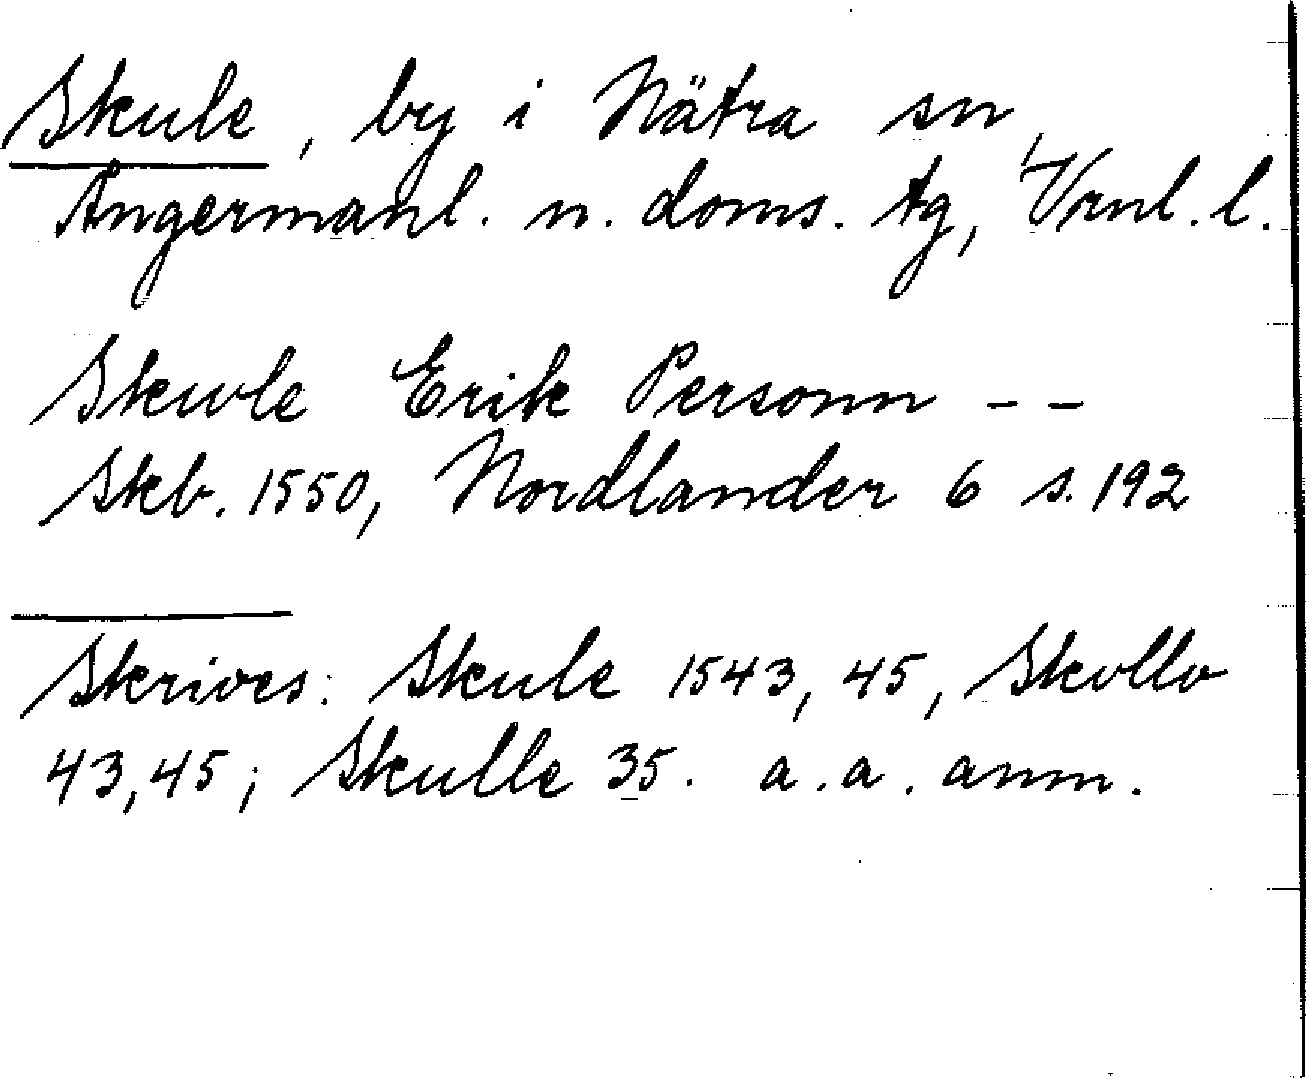 Skule, by i Nätra sn,
Ångermanl. n. doms. tg, Vrnl. l.
Skwle Erik Personn - -
Skb. 1550, Nordlander 6 s. 192
Skrives: Skule 1543, 45, Skollo
43, 45; Skulle 35. a. a. anm.